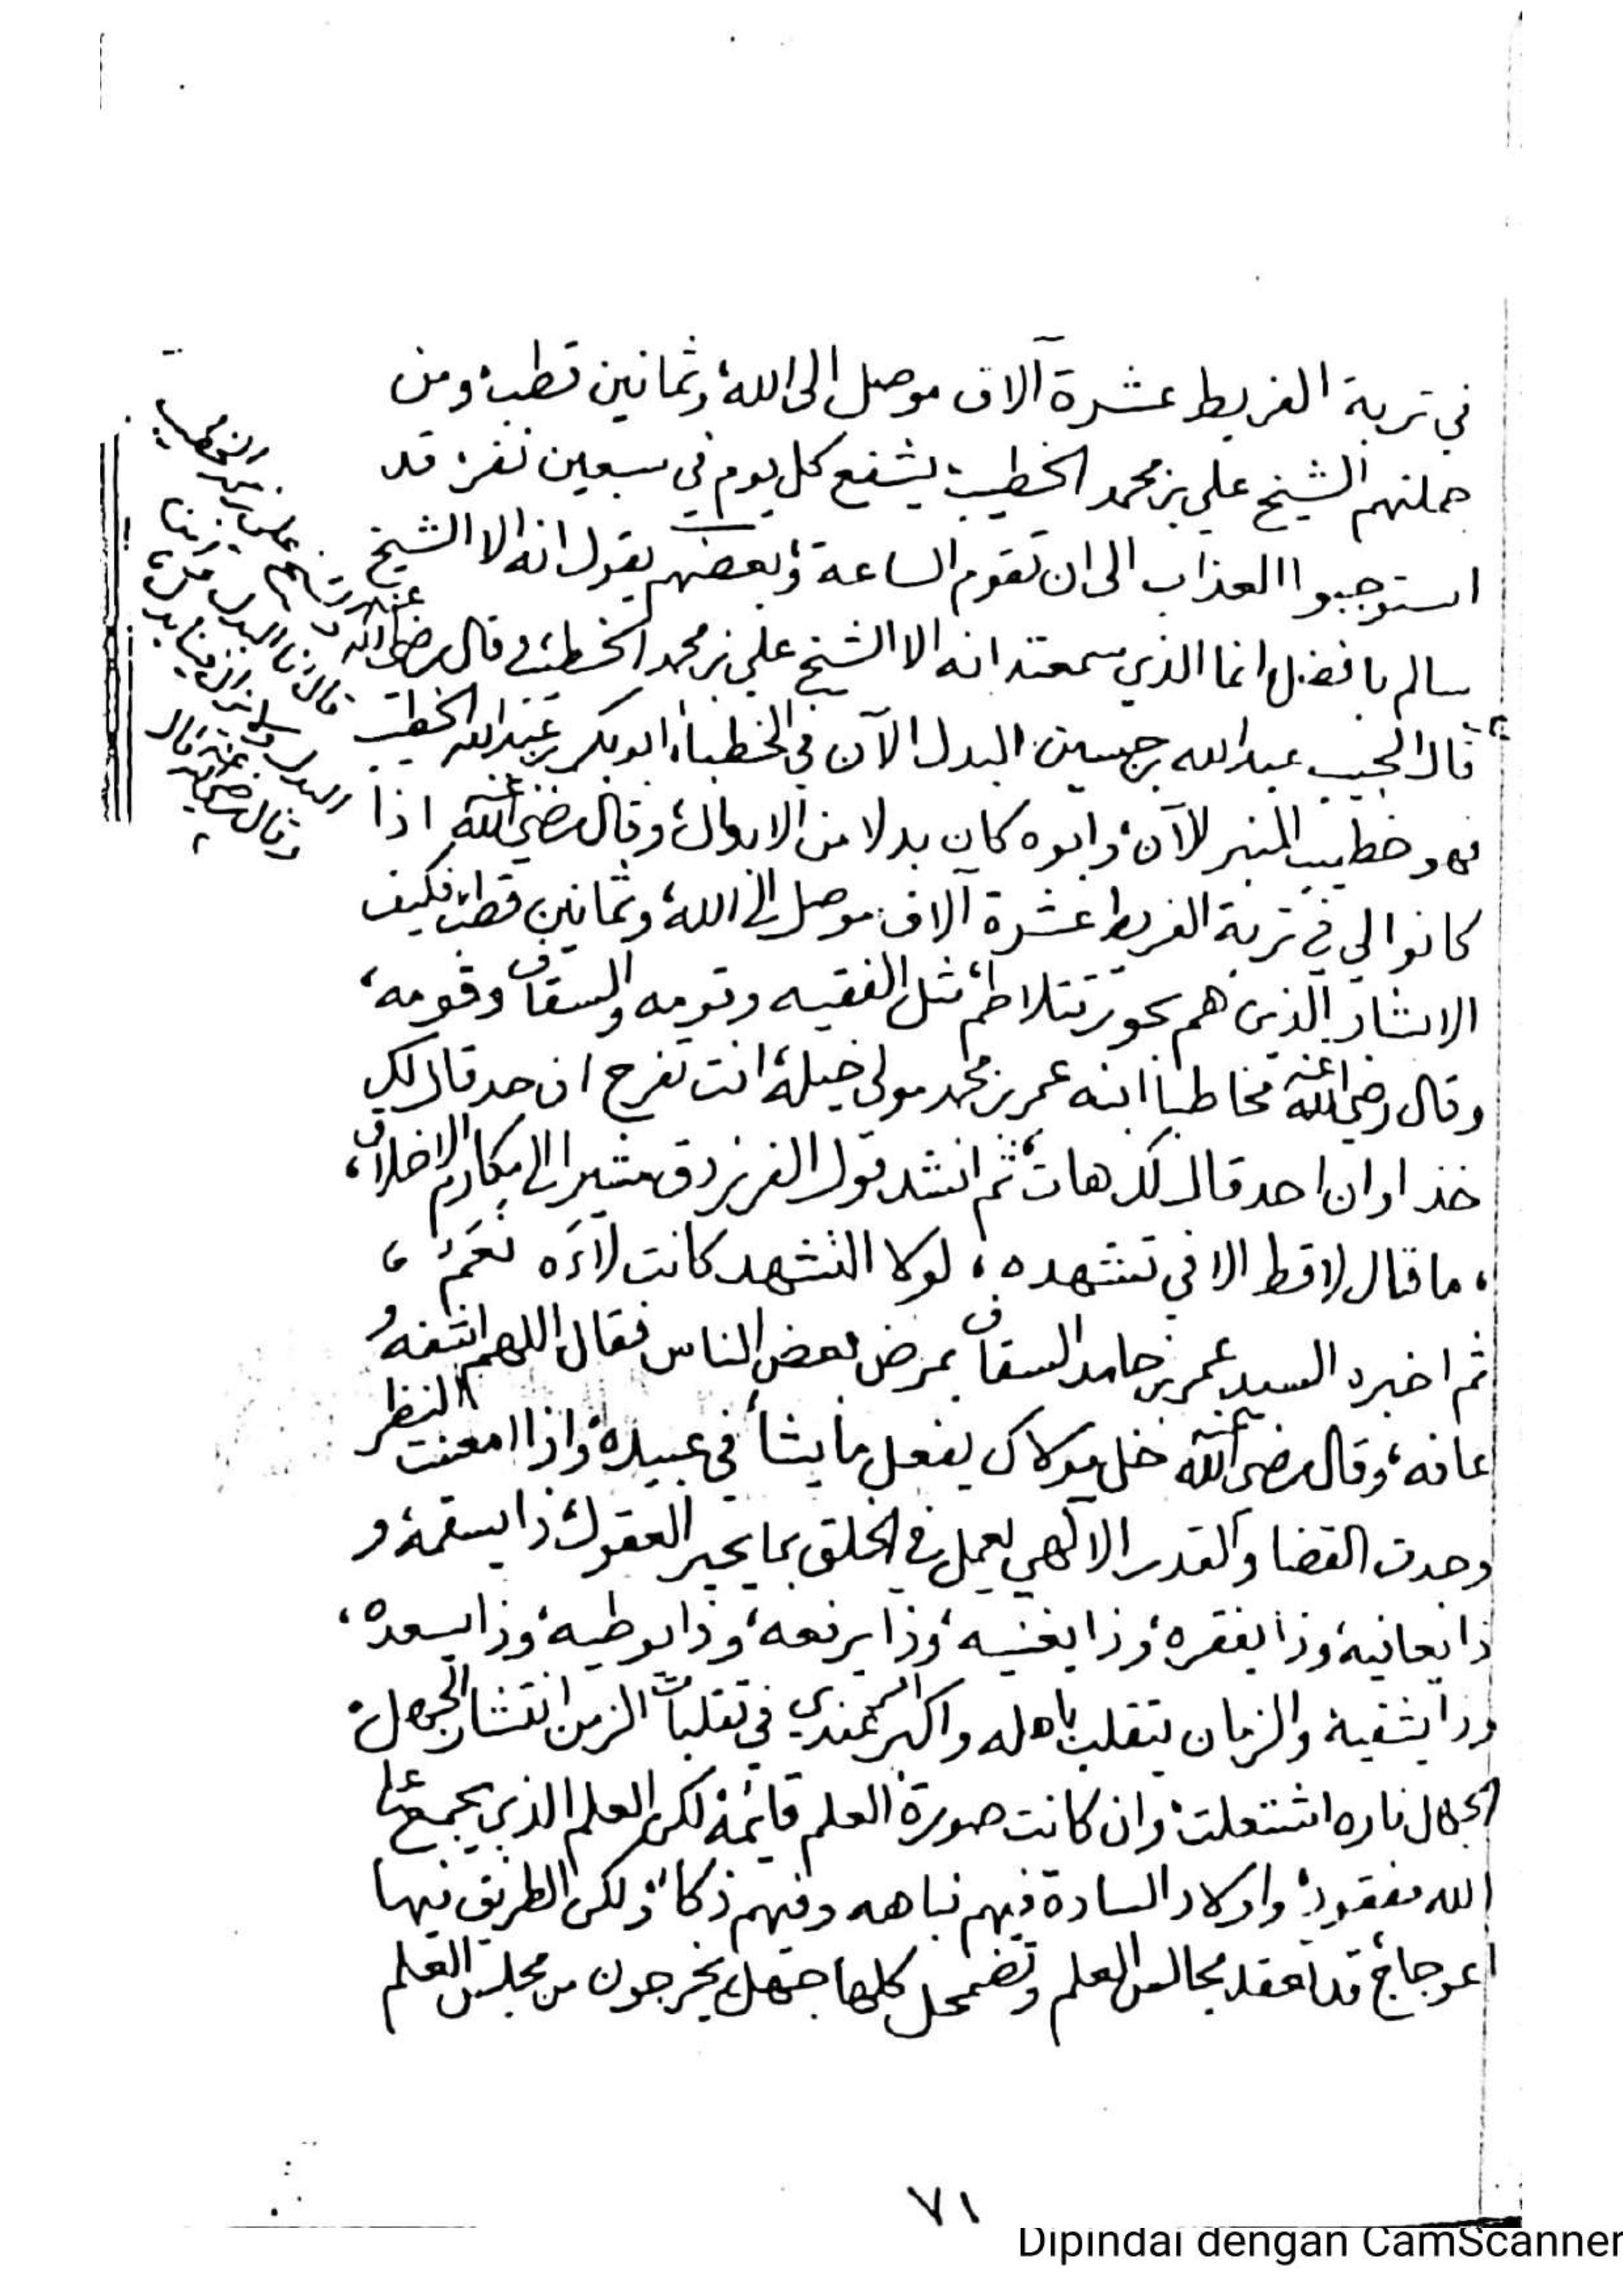 في تربة الفريط عشرة آلاف موصل الى الله، وثمانين قطب، ومن
جملتهم الشيخ علي بن محمد الخطيب، يشفع كل يوم في سبعين نفر، قد
استوجبوا العذاب الى ان تقوم الساعة، وبعضهم يقول انه الا الشيخ
سالم بافضل انما الذي سمعته انه الا الشيخ علي بن محمد الخطيب، وقال رضي الله عنه
قال الحبيب عبدالله بن حسين، البدل الآن في الخطباء، ابوبكر بن عبدالله الخطيب
فهو خطيب المنبر للآن، وابوه كان بدلا من الابدال، وقال رضي الله عنه اذا
كانوا لي في تربة الفريط عشرة آلاف موصل الى الله، وثمانين قطب، فكيف
الا بشار الذين هم بحور تتلاطم، مثل الفقيه وقومه والسقاف وقومه،
وقال رضي الله عنه مخاطبا ابنه عمر بن محمد مولى خيلة، انت تفرح ان حد قال لك
خذ اوان احد قال لك هات، ثم انشد قول الفرزدق مشيرا الى مكارم الاخلاق،
، ما قال لا قط الا في تشهده ، لولا التشهد كانت لاءَه نَعَمُ ،
ثم اخبره السيد عمر بن حامد السقاف بمرض بعض الناس فقال اللهم اشفه و
عافه، وقال رضي الله عنه خل مولاك يفعل ما يشأ في عبيده، واذا امعنت النظر
وجدت القضا والقدر الالهي يعمل في الخلق بما يحير العقول، ذا يسقمه، و
ذا يعافيه، وذا يفقره، وذا يغنيه، وذا يرفعه، وذا يوطيه، وذا يسعده،
وذا يشقيه، والزمان يتقلب باهله واكبر عندي في تقلبات الزمن انتشار الجهل،
الجهل ناره اشتعلت، وان كانت صورة العلم قائمة، لكن العلم الذي يجمع على
الله مفقود، واولاد السادة فيهم نباهه وفيهم ذكاء، ولكن الطريق فيها
اعوجاج، قد تعقد مجالس العلم وتضمحل كلها جهل، يخرجون من مجلس العلم
٧١
Dipindai dengan CamScanner